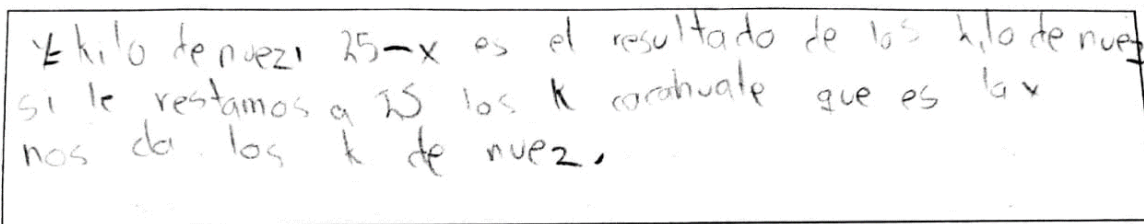 kilo de nuez, 25-x es el resultado de los kilo de nuez
si le restamos a 25 los k cacahuate que es la x
nos da los k de nuez.